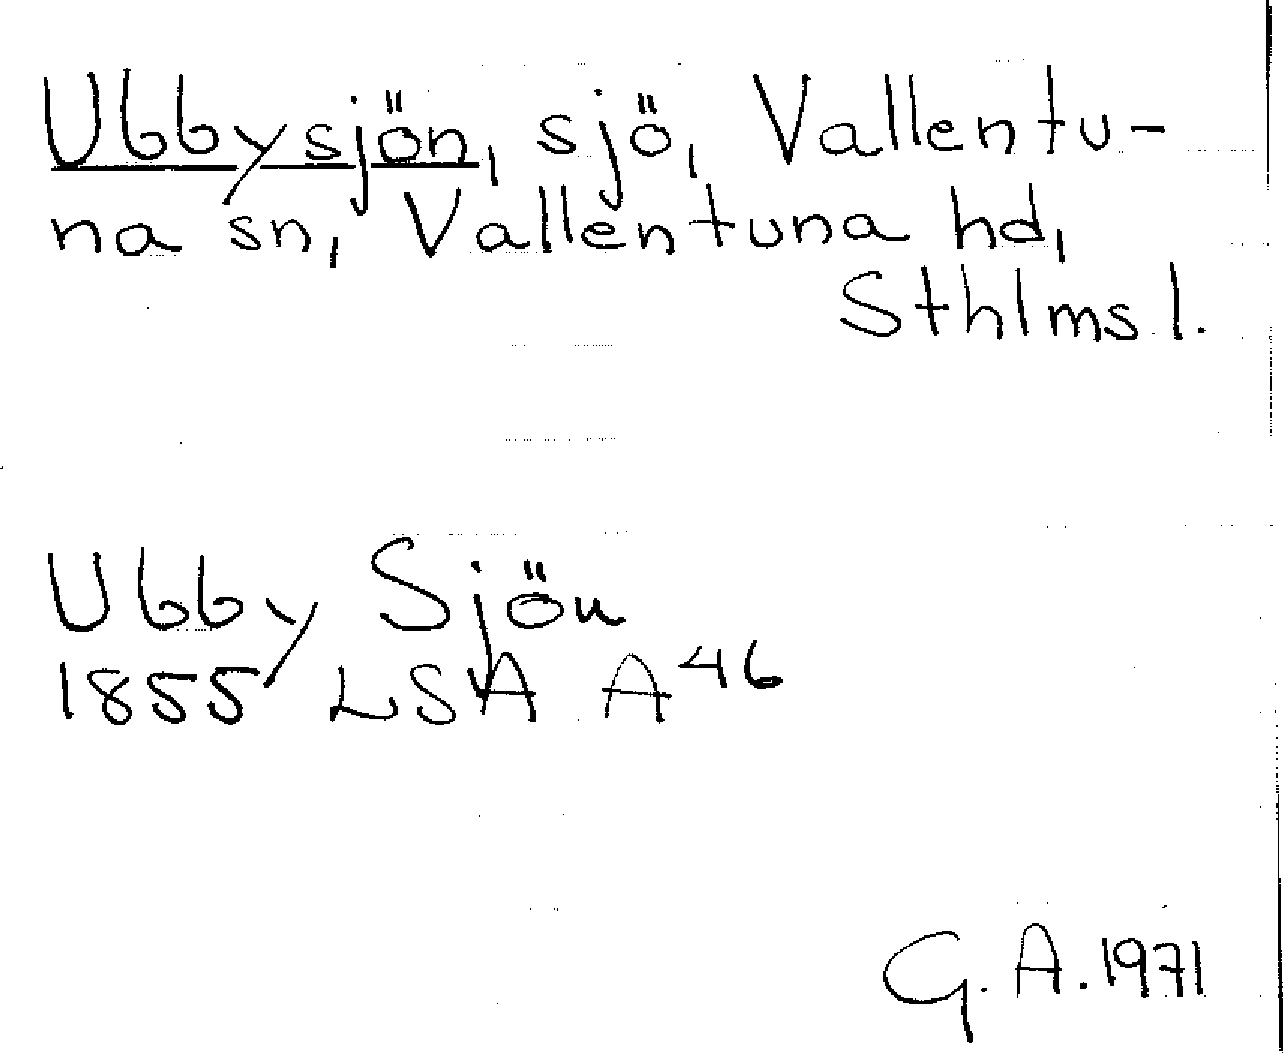 Ubbysjön, sjö, Vallentu-
na sn, Vallentuna hd,
Sthlms l.
Ubby Sjön
1855 LSA A46
G. A. 1971